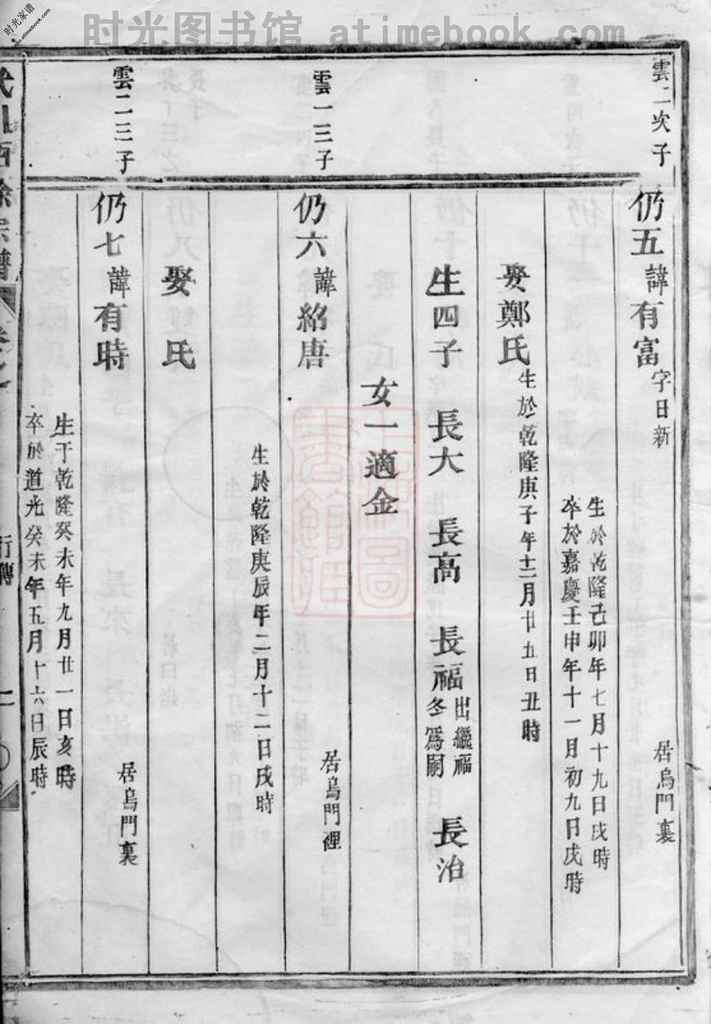 时光图书馆 atimebook.com
时光家谱
雲二次子
仍五諱有富字日新 居烏門裏
生於乾隆己卯年七月十九日戌時
卒於嘉慶壬申年十一月初九日戌時
娶鄭氏生於乾隆庚子年十二月廿五日丑時
生四子 長大 長高 長福出繼福冬為嗣 長治
女一適金
雲一三子
仍六諱紹唐 居烏門裡
生於乾隆庚辰年二月十二日戌時
娶氏
雲二三子
仍七諱有時 居烏門裏
生于乾隆癸未年九月廿一日亥時
卒於道光癸未年五月十六日辰時
西徐宗譜
行傳